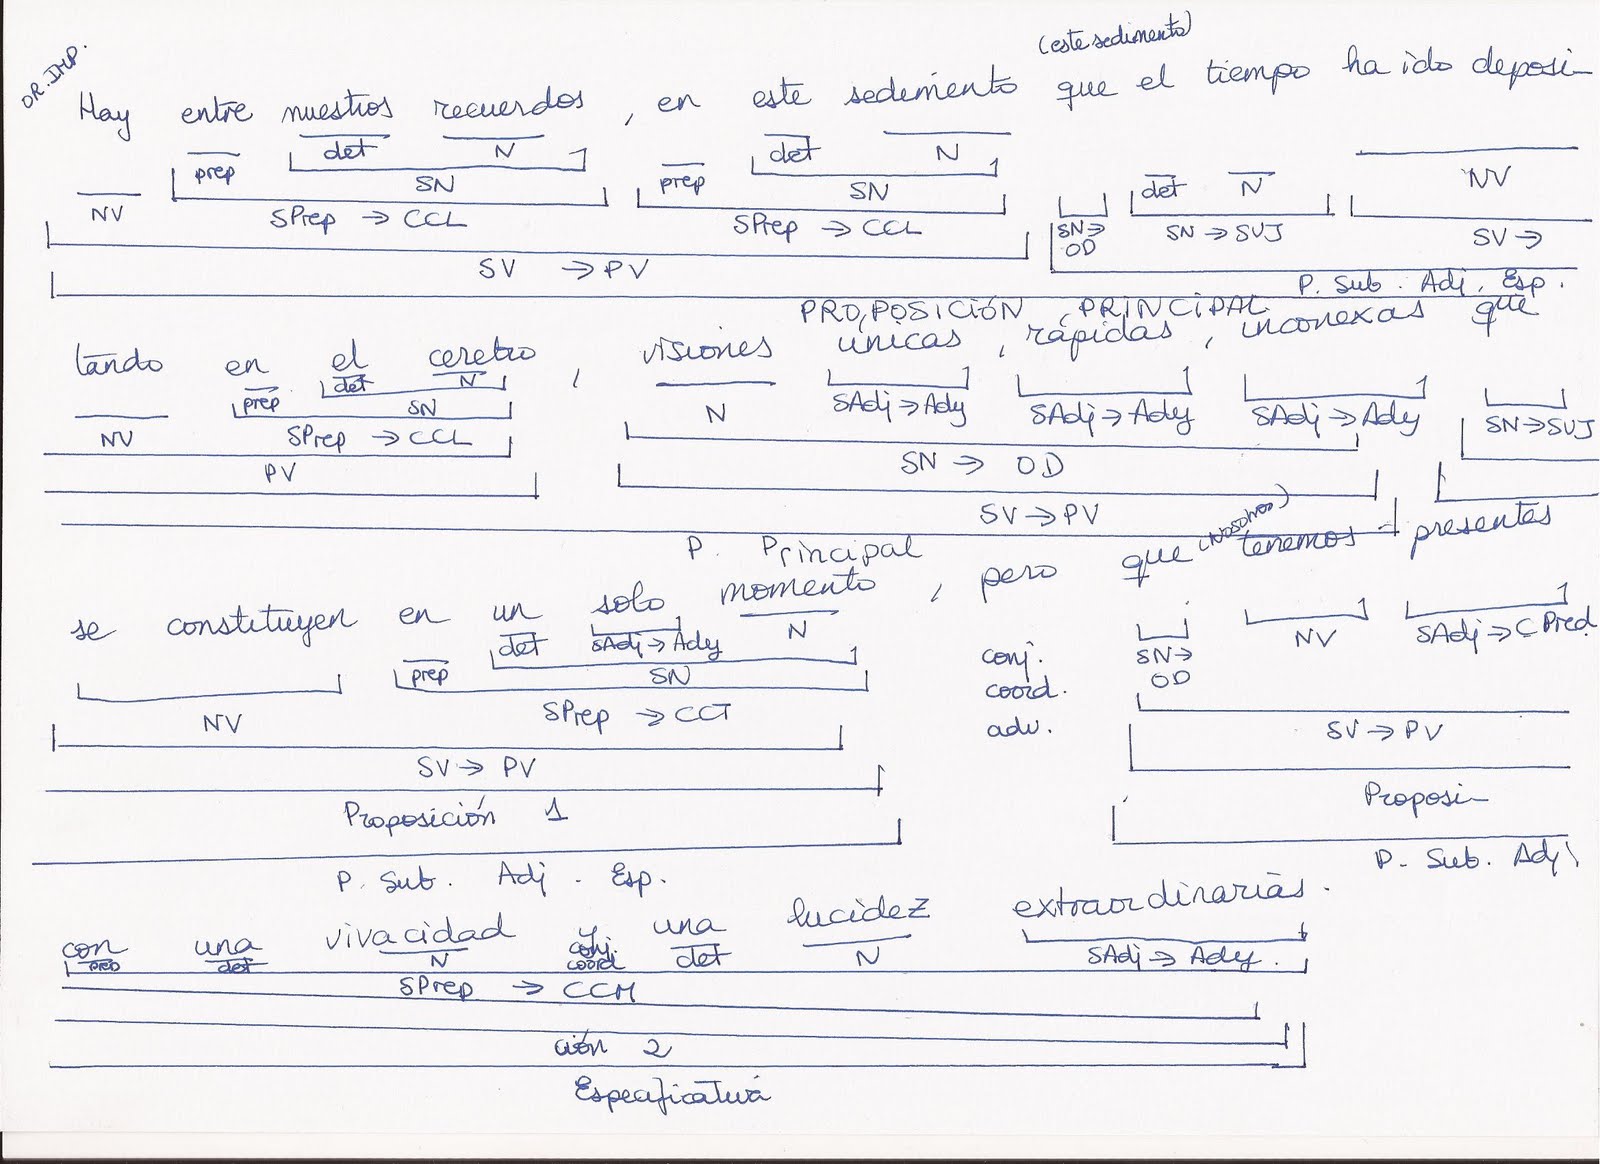 (este sedimento)
OR. IMP.
Hay entre nuestros recuerdos, en este sedimento que el tiempo ha ido deposi-
det N det N
prep SN prep SN det N NV
NV SPrep → CCL SPrep → CCL SN → OD SN → SUJ SV →
SV → PV P. Sub. Adj. Esp.
PROPOSICIÓN PRINCIPAL
tando en el cerebro, visiones únicas, rápidas, inconexas que
prep det N N SAdj → Ady SAdj → Ady SAdj → Ady SN → SUJ
SN
NV SPrep → CCL SN → OD
PV SV → PV
P. Principal
(Nosotros)
se constituyen en un solo momento, pero que tenemos presentes
det SAdj → Ady N
prep SN conj. coord. adv. SN → OD NV SAdj → C Pred.
NV SPrep → CCT SV → PV
SV → PV
Proposición 1 Proposi-
P. Sub. Adj. Esp. P. Sub. Adj.
con una vivacidad y una lucidez extraordinarias.
prep det N conj. coord det N SAdj → Ady.
SPrep → CCM
ción 2
Especificativa